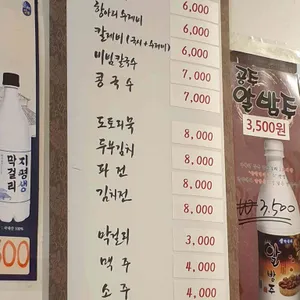 항아리 수제비 6,000
칼제비 (국시+수제비) 6,000
비빔칼국수 7,000
콩국수 7,000
도토리묵 8,000
두부김치 8,000
파전 8,000
김치전 8,000
막걸리 3,000
맥주 4,000
소주 4,000
지평생
막걸리
00
공주
알밤주
3,500원
₩ 3,500
알밤주